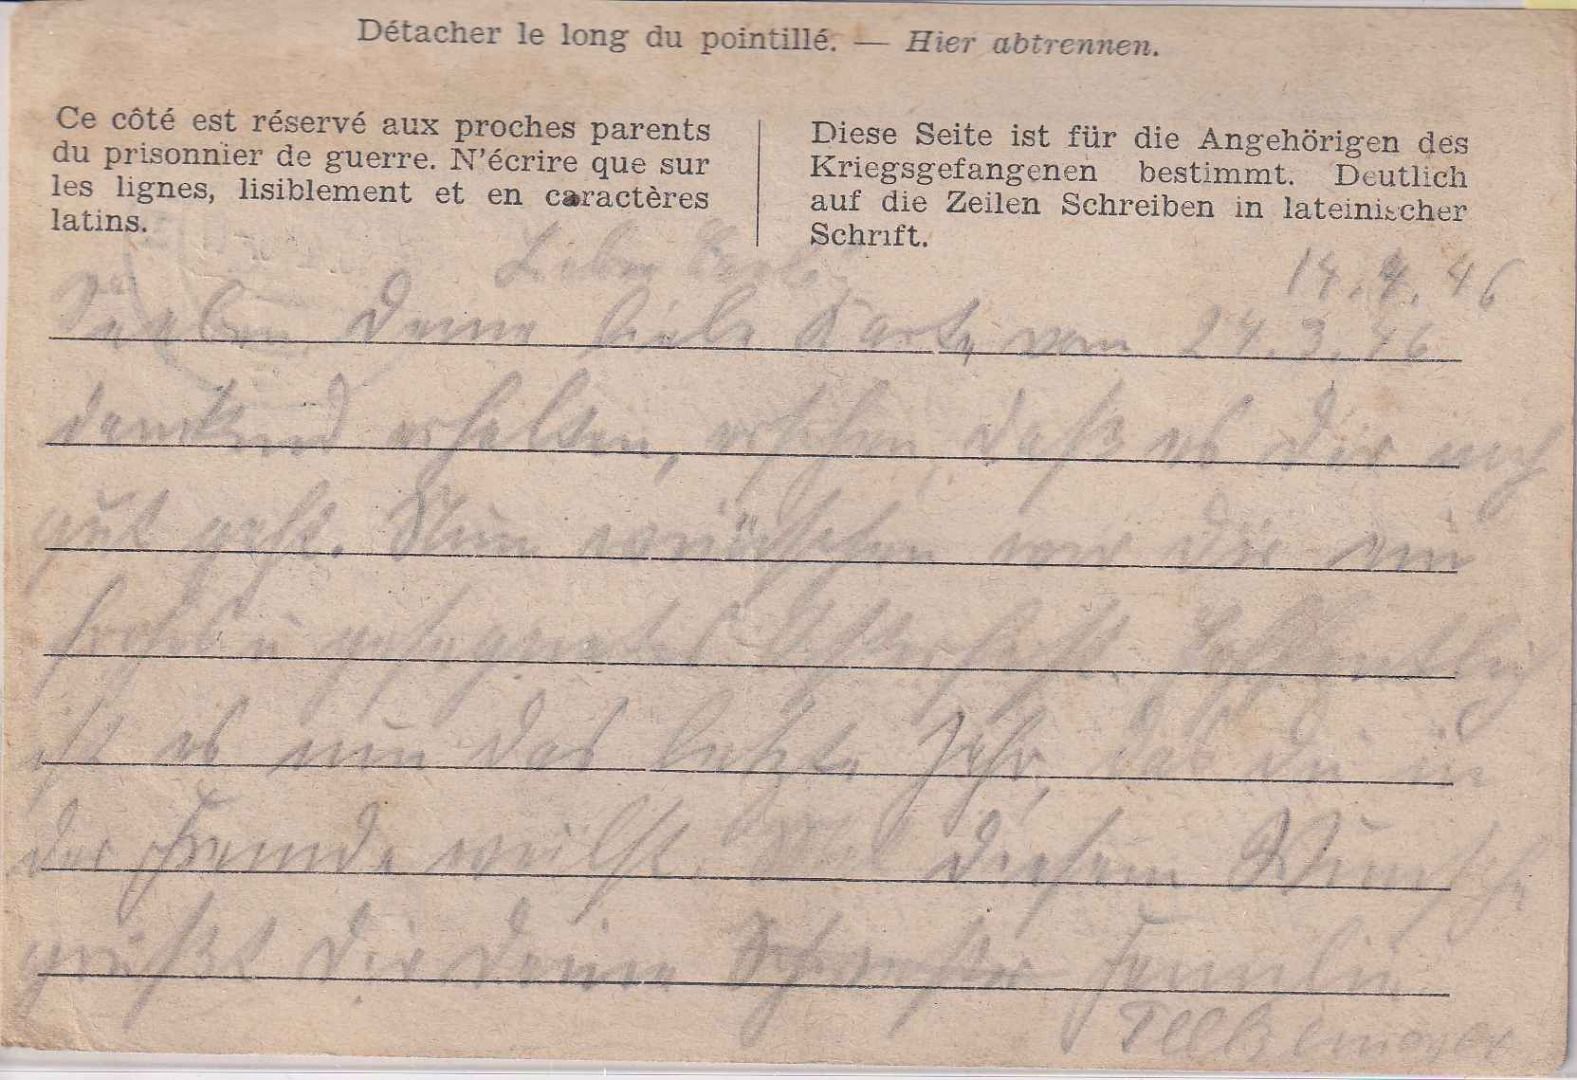 Détacher le long du pointillé. — Hier abtrennen.
Ce côté est réservé aux proches parents
du prisonnier de guerre. N'écrire que sur
les lignes, lisiblement et en caractères
latins.
Diese Seite ist für die Angehörigen des
Kriegsgefangenen bestimmt. Deutlich
auf die Zeilen Schreiben in lateinischer
Schrift.
14.4.46
Lieber
Soeben Deine liebe Karte vom 24.3.46
dankend erhalten, ersehen, daß es Dir noch
gut geht. Nun wünschen wir Dir ein
frohes u gesegnetes Osterfest. Hoffentlich
ist es nun das letzte Jahr, das Du in
der Fremde weilst. Mit diesem Wunsche
grüßt Dir Deine Schwester Familie